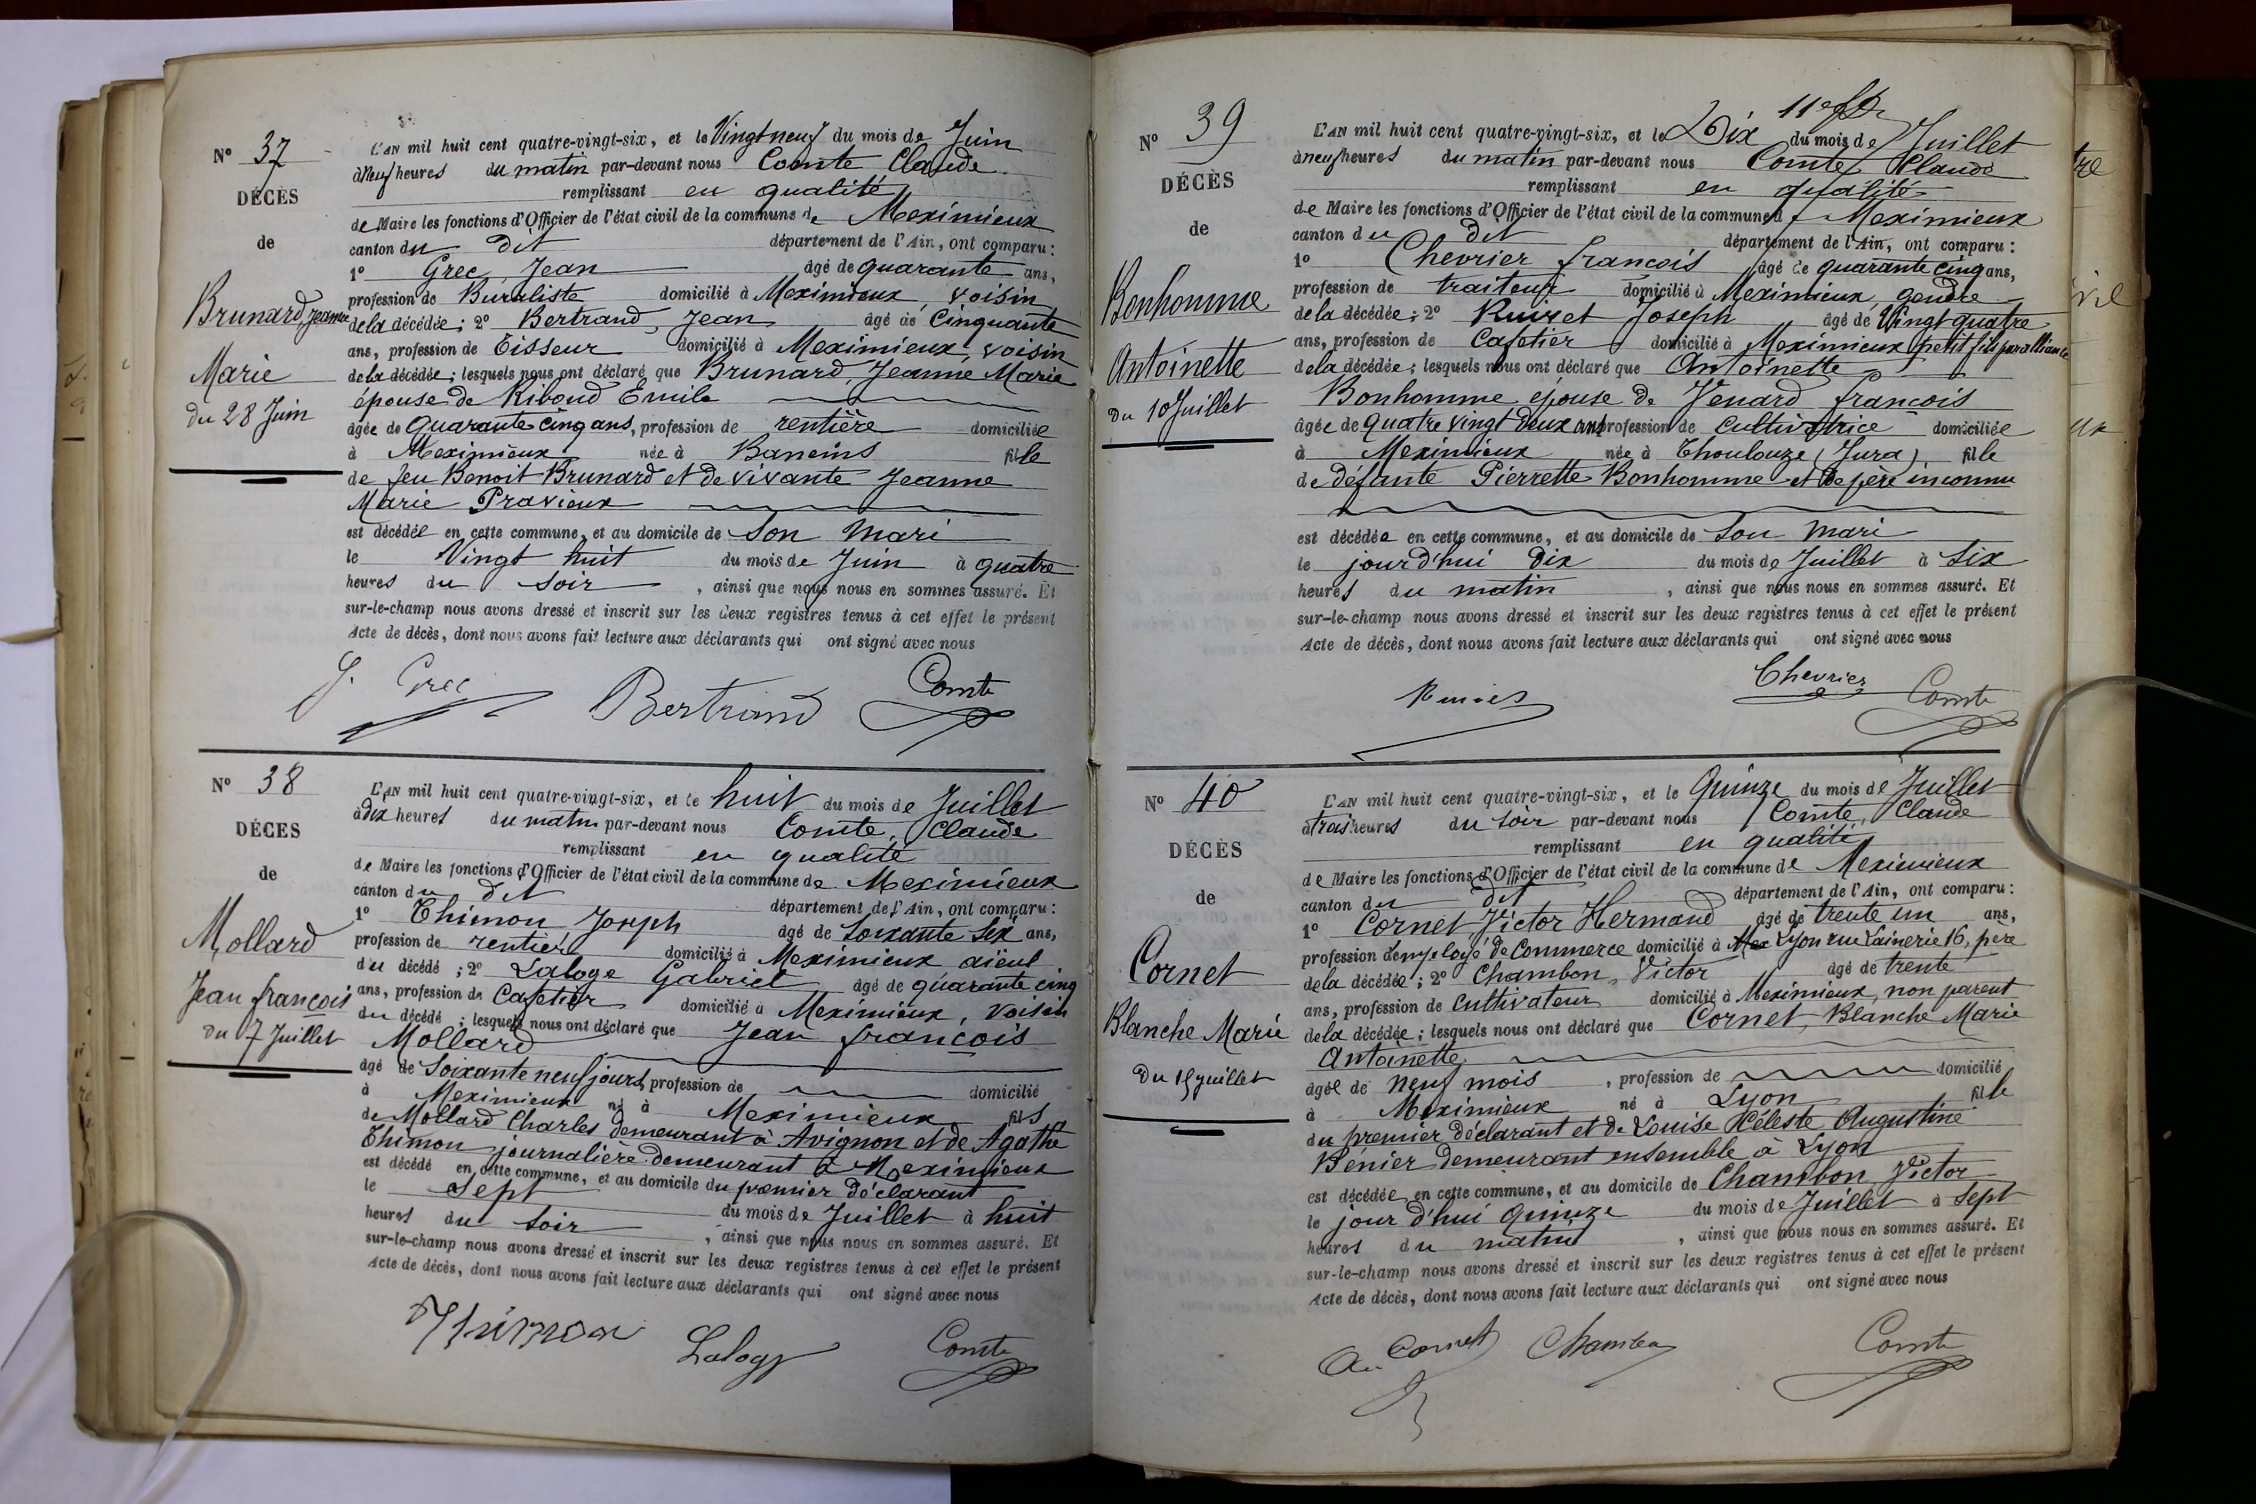 Nº 37
DÉCÈS
de
Brunard, Jeanne
Marie
du 28 Juin
L'AN mil huit cent quatre-vingt-six, et le Vingt neuf du mois de Juin
à Neuf heures du matin par-devant nous Comte Claude
remplissant en qualité
de Maire les fonctions d'Officier de l'état civil de la commune de Meximieux
canton du dit département de l'Ain, ont comparu :
1º Grec, Jean âgé de quarante ans,
profession de Buraliste domicilié à Meximieux, voisin
de la décédée ; 2º Bertrand, Jean âgé de Cinquante
ans, profession de Tisseur domicilié à Meximieux, voisin
de la décédée ; lesquels nous ont déclaré que Brunard, Jeanne Marie
épouse de Riboud Emile
âgée de Quarante cinq ans, profession de rentière domiciliée
à Meximieux née à Baneins fille
de feu Benoit Brunard et de vivante Jeanne
Marie Pravieux
est décédée en cette commune, et au domicile de son mari
le Vingt huit du mois de Juin à quatre
heures du soir, ainsi que nous nous en sommes assuré. Et
sur-le-champ nous avons dressé et inscrit sur les deux registres tenus à cet effet le présent
Acte de décès, dont nous avons fait lecture aux déclarants qui ont signé avec nous
J. Grec Bertrand Comte
Nº 38
DÉCES
de
Mollard
Jean françois
du 7 Juillet
L'AN mil huit cent quatre-vingt-six, et le huit du mois de Juillet
à dix heures du matin par-devant nous Comte, Claude
remplissant en qualité
de Maire les fonctions d'Officier de l'état civil de la commune de Meximieux
canton du dit département de l'Ain, ont comparu :
1º Thimon Joseph âgé de Soixante Six ans,
profession de rentier domicilié à Meximieux aieul
du décédé ; 2º Laloge Gabriel âgé de quarante cinq
ans, profession de Cafetier domicilié à Meximieux, voisin
du décédé ; lesquels nous ont déclaré que Jean françois
Mollard
âgé de Soixante neuf jours, profession de domicilié
à Meximieux né à Meximieux fils
de Mollard Charles demeurant à Avignon et de Agathe
Thimon journalière demeurant à Meximieux
est décédé en cette commune, et au domicile du premier déclarant
le Sept du mois de Juillet à huit
heures du soir, ainsi que nous nous en sommes assuré. Et
sur-le-champ nous avons dressé et inscrit sur les deux registres tenus à cet effet le présent
Acte de décès, dont nous avons fait lecture aux déclarants qui ont signé avec nous
Thimon Laloge Comte
Nº 39
DÉCÈS
de
Bonhomme
Antoinette
Du 10 Juillet
L'AN mil huit cent quatre-vingt-six, et le Dix du mois de Juillet
à neuf heures du matin par-devant nous Comte, Claude
remplissant en qualité
de Maire les fonctions d'Officier de l'état civil de la commune de Meximieux
canton du dit département de l'Ain, ont comparu :
1º Chevrier françois âgé de quarante cinq ans,
profession de traiteur domicilié à Meximieux, gendre
de la décédée ; 2º Joseph âgé de Vingt quatre
ans, profession de Cafetier domicilié à Meximieux petit fils par alliance
de la décédée ; lesquels nous ont déclaré que Antoinette
Bonhomme épouse de Venard françois
âgée de quatre vingt deux ans profession de cultivatrice domiciliée
à Meximieux née à Thoulouze (Jura) fille
de défunte Pierrette Bonhomme et de père inconnu
est décédée en cette commune, et au domicile de son mari
le jourd'hui dix du mois de Juillet à Six
heures du matin, ainsi que nous nous en sommes assuré. Et
sur-le-champ nous avons dressé et inscrit sur les deux registres tenus à cet effet le présent
Acte de décès, dont nous avons fait lecture aux déclarants qui ont signé avec nous
Chevrier Comte
Nº 40
DÉCÈS
de
Cornet
Blanche Marie
Du 15 juillet
L'AN mil huit cent quatre-vingt-six, et le Quinze du mois de Juillet
à trois heures du soir par-devant nous Comte, Claude
remplissant en qualité
de Maire les fonctions d'Officier de l'état civil de la commune de Meximieux
canton du dit département de l'Ain, ont comparu :
1º Cornet Victor Hermand âgé de trente un ans,
profession d'employé de Commerce domicilié à Mex Lyon rue Lainerie 16, père
de la décédée ; 2º Chambon, Victor âgé de trente
ans, profession de cultivateur domicilié à Meximieux, non parent
de la décédée ; lesquels nous ont déclaré que Cornet, Blanche Marie
Antoinette
âgée de neuf mois, profession de domicilié
à Meximieux né à Lyon fille
du premier déclarant et de Louise Céleste Augustine
Bénier demeurant ensemble à Lyon
est décédée en cette commune, et au domicile de Chambon Victor
le jour d'hui quinze du mois de Juillet à Sept
heures du matin, ainsi que nous nous en sommes assuré. Et
sur-le-champ nous avons dressé et inscrit sur les deux registres tenus à cet effet le présent
Acte de décès, dont nous avons fait lecture aux déclarants qui ont signé avec nous
Cornet Chambon Comte